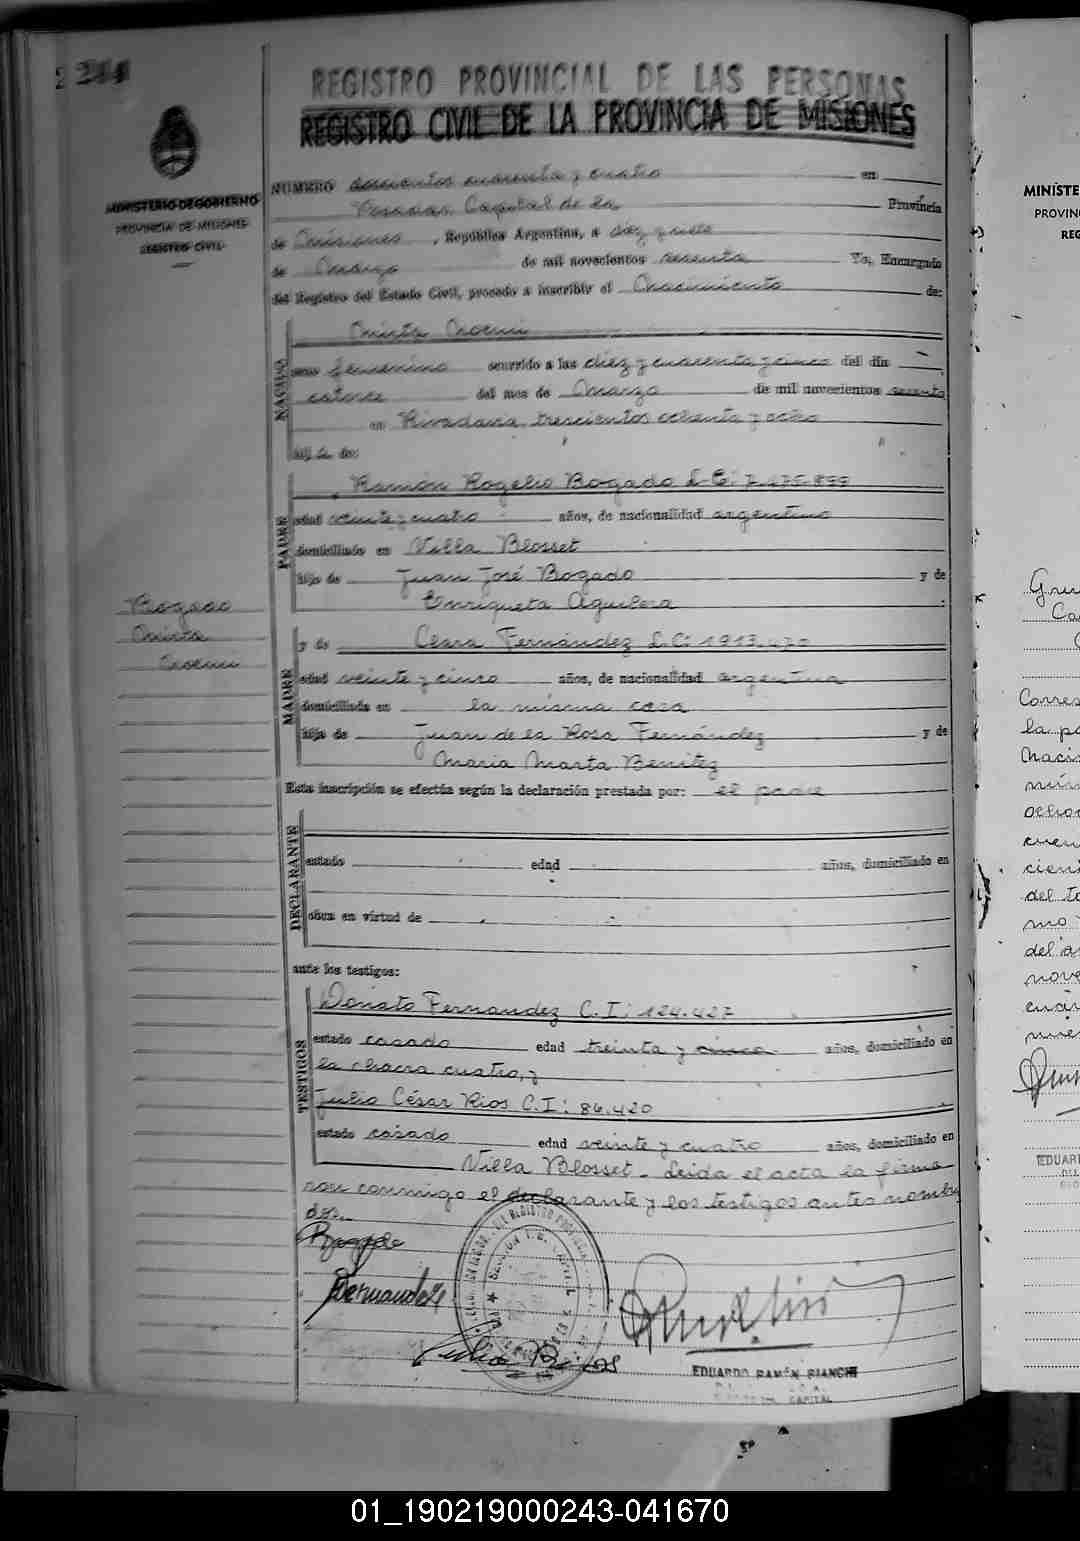 244
REGISTRO PROVINCIAL DE LAS PERSONAS
REGISTRO CIVIL DE LA PROVINCIA DE MISIONES
MINISTERIO DE GOBIERNO
PROVINCIA DE MISIONES
REGISTRO CIVIL
NUMERO doscientos cuarenta y cuatro en
Posadas Capital de la Provincia
de Misiones, República Argentina, a diez y siete
de Marzo de mil novecientos sesenta Yo, Encargado
del Registro del Estado Civil, procedo a inscribir el Nacimiento de:
NACIDO
Mirta Noemi
sexo femenino ocurrido a las diez y cuarenta y cinco del día
catorce del mes de Marzo de mil novecientos sesenta
en Rivadavia trescientos ochenta y ocho
hij a de:
PADRE
Ramón Rogelio Bogado L-E: 7.475.899
edad veinte y cuatro años, de nacionalidad argentino
domiciliado en Villa Blosset
hijo de Juan José Bogado y de
Enriqueta Aguilera
Bogado
Mirta
Noemi
MADRE
y de Clara Fernández L.C: 1.913.470
edad veinte y cinco años, de nacionalidad argentina
domiciliada en la misma casa
hija de Juan de la Rosa Fernández y de
Maria Marta Benitez
Esta inscripción se efectúa según la declaración prestada por: el padre
DECLARANTE
estado edad años, domiciliado en
obra en virtud de
ante los testigos:
TESTIGOS
Donato Fernandez C.I: 124.427
estado casado edad treinta y cinco años, domiciliado en
la chacra cuatro, y
Julio César Rios C.I: 86.420
estado casado edad veinte y cuatro años, domiciliado en
Villa Blosset - Leida el acta la firma
ron conmigo el declarante y los testigos antes nombra
dos.
Bogado
Fernandez
Julio Rios
EDUARDO RAMÓN BIANCHI
CAPITAL
MINISTE
PROVIN
REG
Corres
la pa
Naci
del
novec
EDUAR
01_190219000243-041670